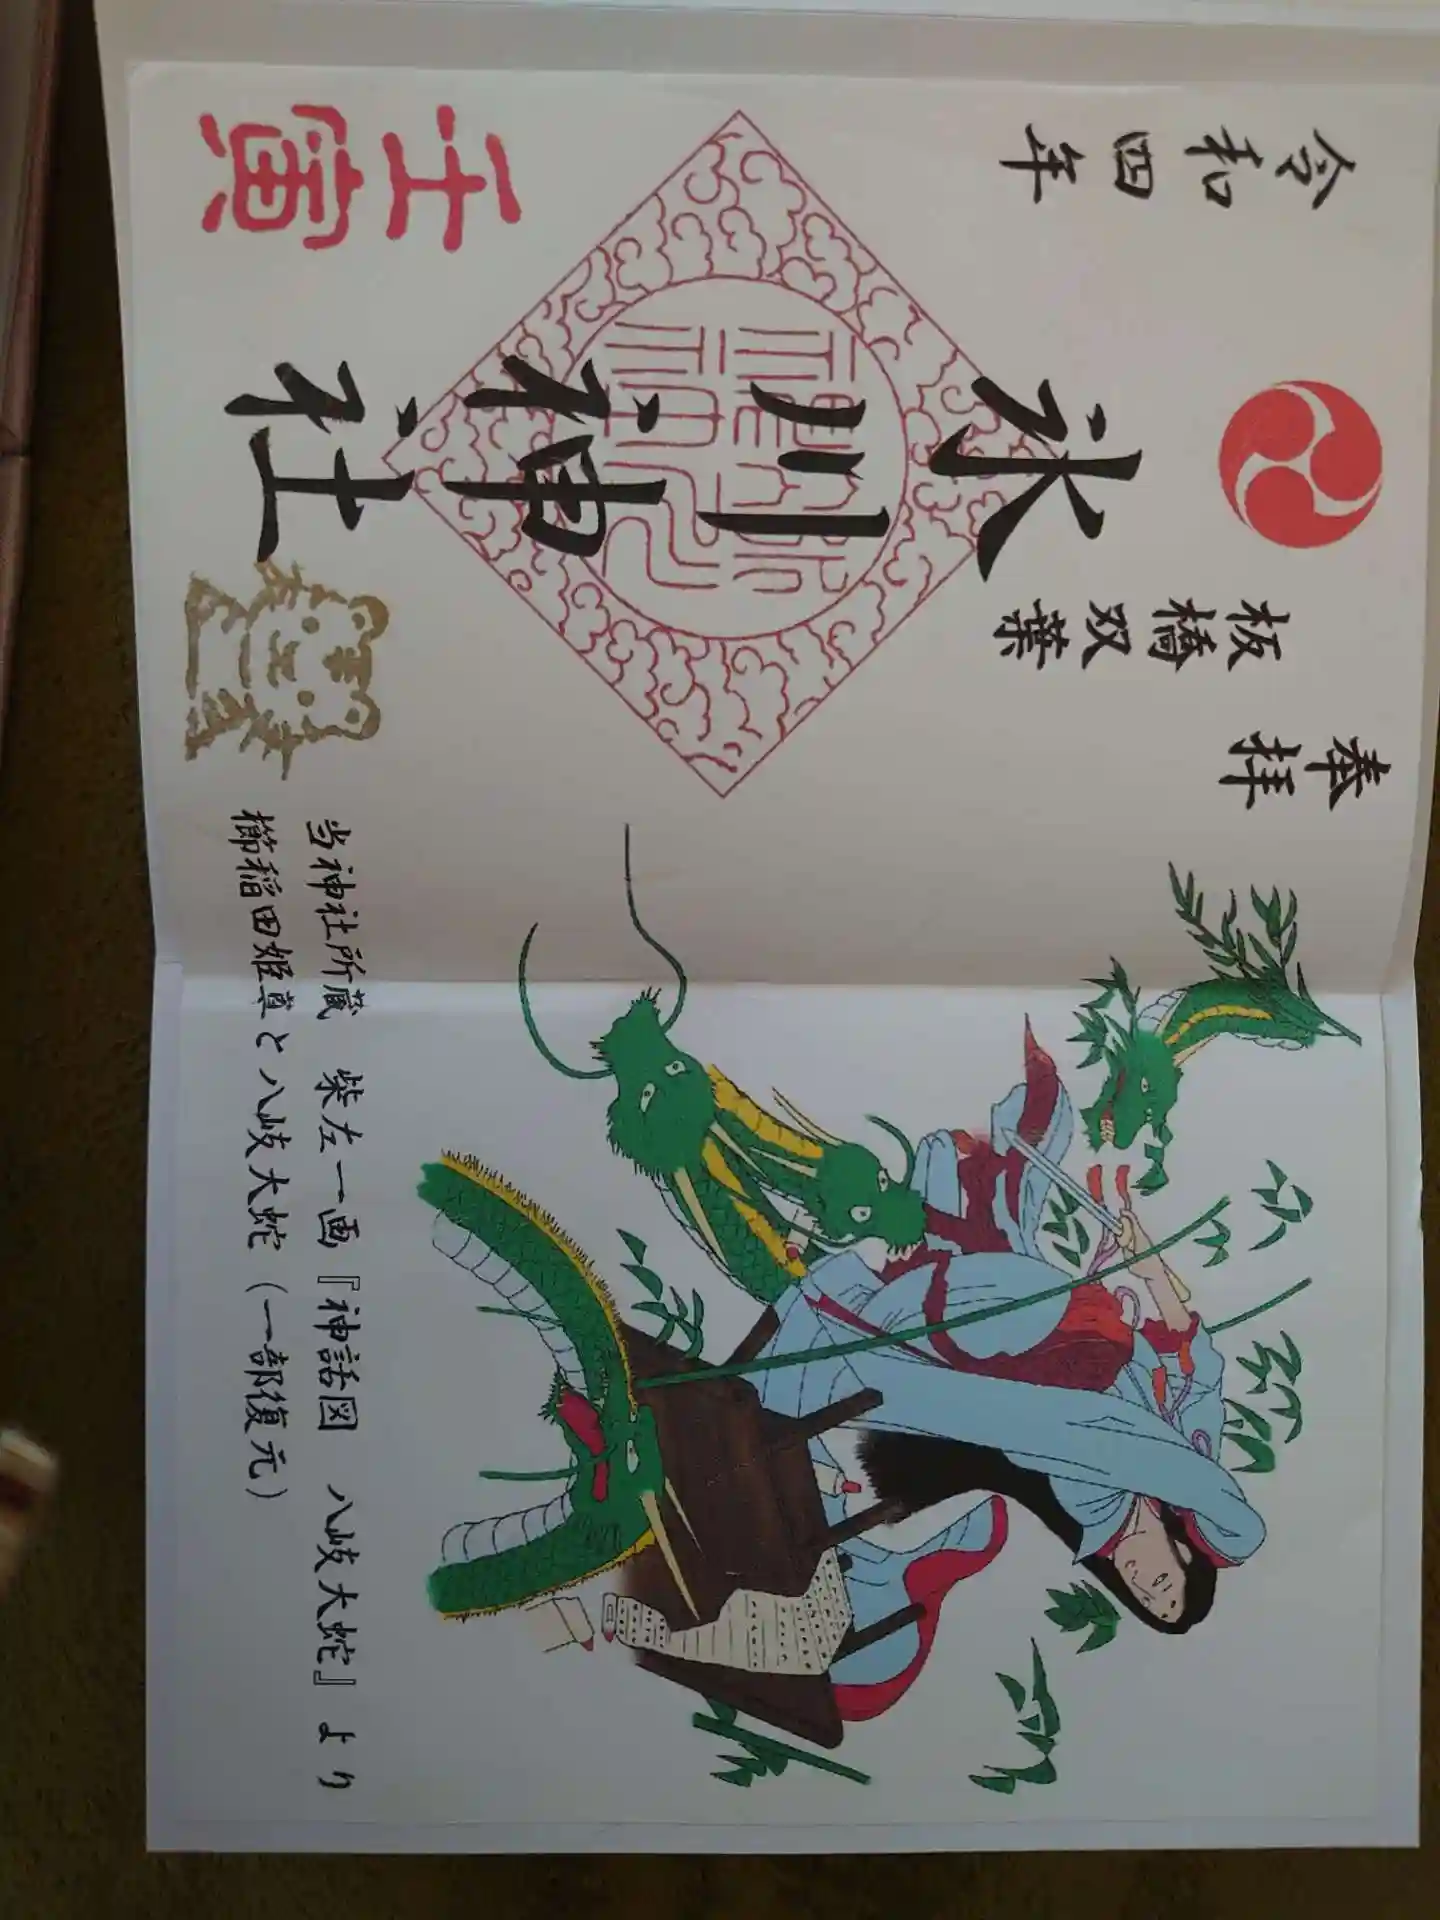 奉拝
板橋双葉
氷川神社
令和四年
壬寅
当神社所蔵 柴左一画『神話図 八岐大蛇』より
櫛稲田姫真と八岐大蛇(一部復元)